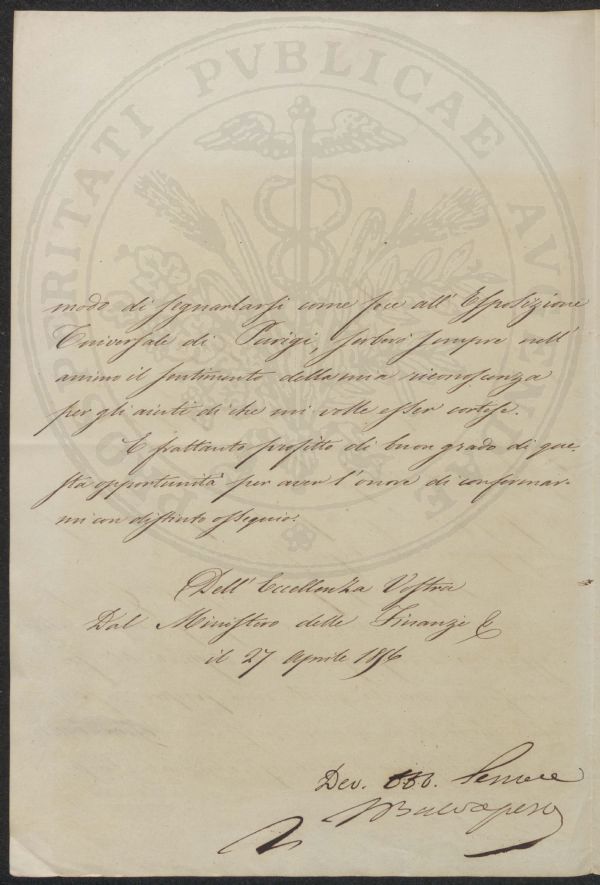 PROSPERITATI PVBLICAE AVGENDAE
modo di segnarlarsi come fece all' Esposizione
Universale di Parigi, serberò sempre nell'
animo il sentimento della mia riconoscenza
per gli aiuti di che mi volle esser cortese.
E frattanto profitto di buon grado di que-
sta opportunità per aver l'onore di confermar-
mi con distinto ossequio.
Dell' Eccellenza Vostra
Dal Ministero delle Finanze &
il 27 Aprile 1856
Dev. Obb. Servore